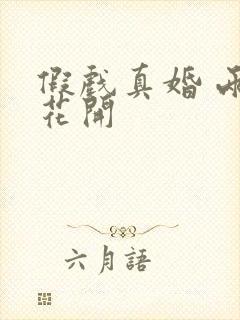 假戲真婚
花開
六月語